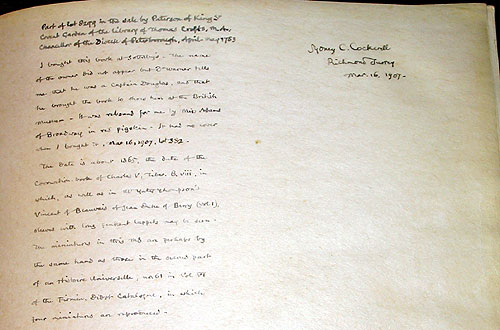 Part of lot 8299 in the sale by Paterson of King St
Covent Garden of the Library of Thomas Crofts, M.A.,
Chancellor of the Diocese of Peterborough, April-May 1783
I bought this book at Sotheby's. The name
of the owner did not appear but Dr Warner tells
me that he was a Captain Douglas, and that
he brought the book to show him at the British
Museum. It was rebound for me by Miss Adams
of Broadway in red pigskin. It had no cover
when I bought it, Mar 16, 1907, lot 332.
The date is about 1365, the date of the
Coronation book of Charles V, Tiber. B. viii, in
which, as well as in Mr Yates Thompson's
Vincent of Beauvais of Jean Duke of Berry (vol. 1),
sleeves with long pendant lappets may be seen.
The miniatures in this MS are perhaps by
the same hand as those in the second part
of an Histoire Universelle, no 61 in
of the Firmin Didot Catalogue, in which
four miniatures are reproduced.
Sydney C. Cockerell
Richmond Surrey
Mar. 16, 1907.